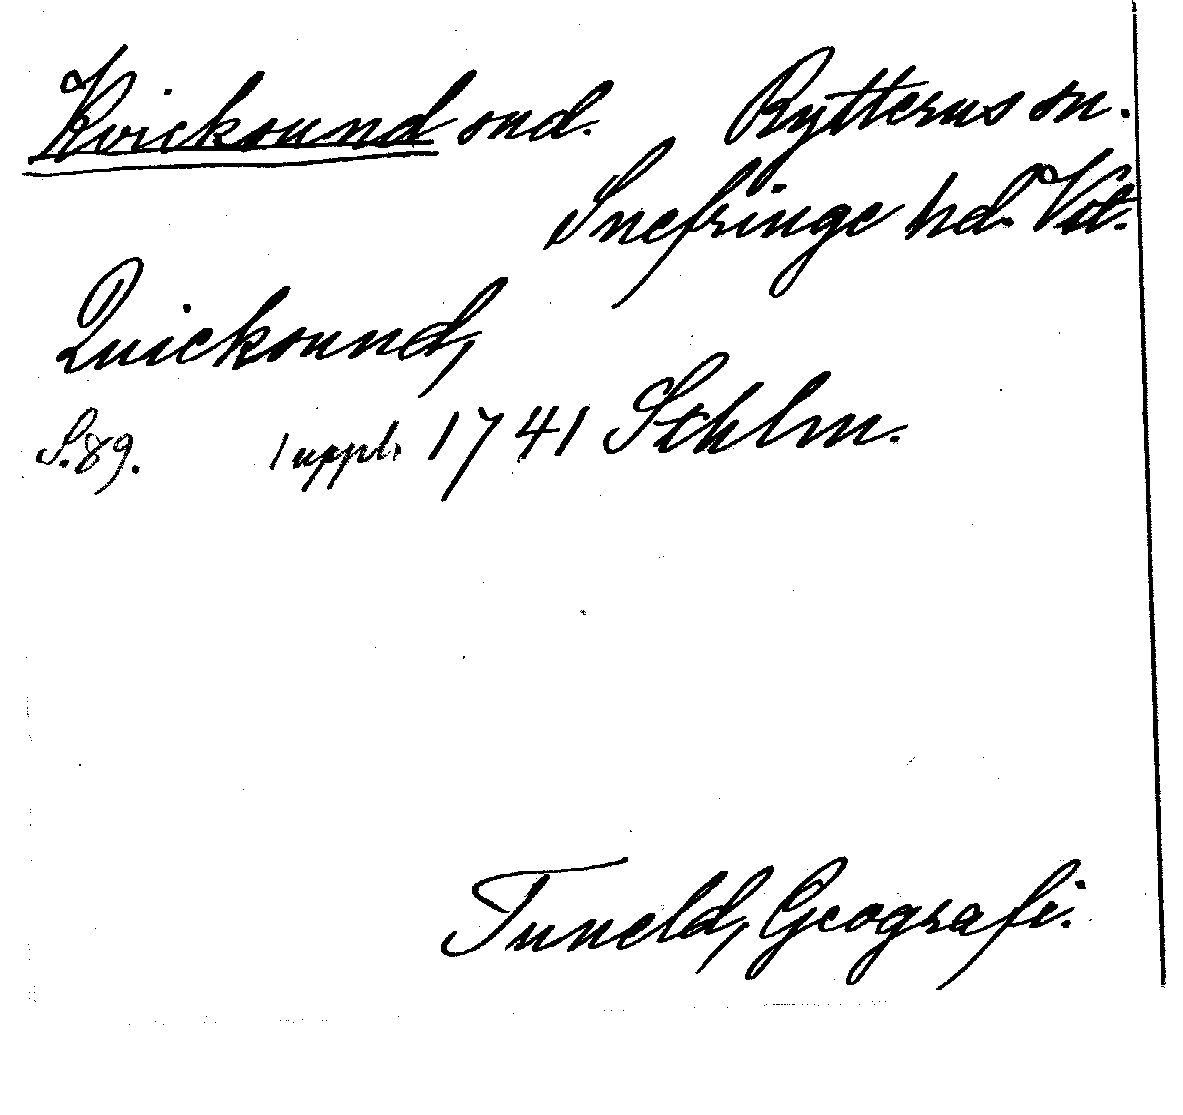 Kvicksund snd. Rytterns sn.
Snefringe hd. Vstl.
Quicksund,
S. 89. 1 uppl. 1741 Sthlm.
Tuneld, Geografi.